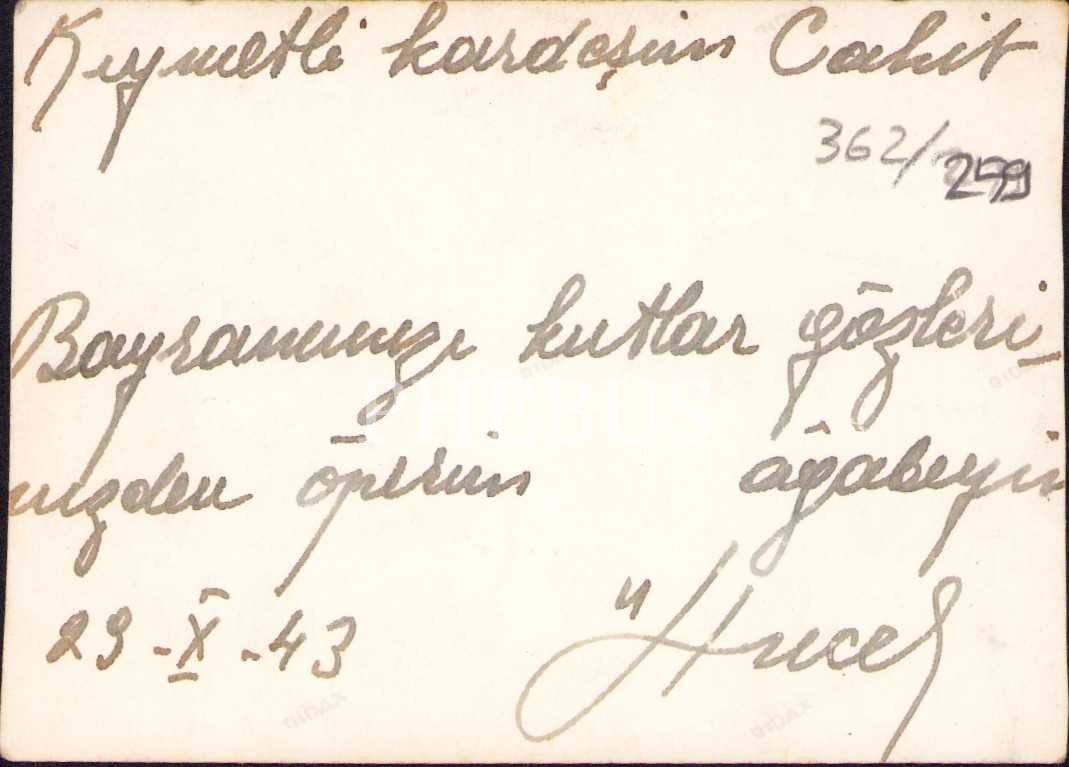 Kıymetli kardeşim Cahit
362/259
Bayramınızı kutlar gözleri_
nizden öperim âğabeyin
29-X-43